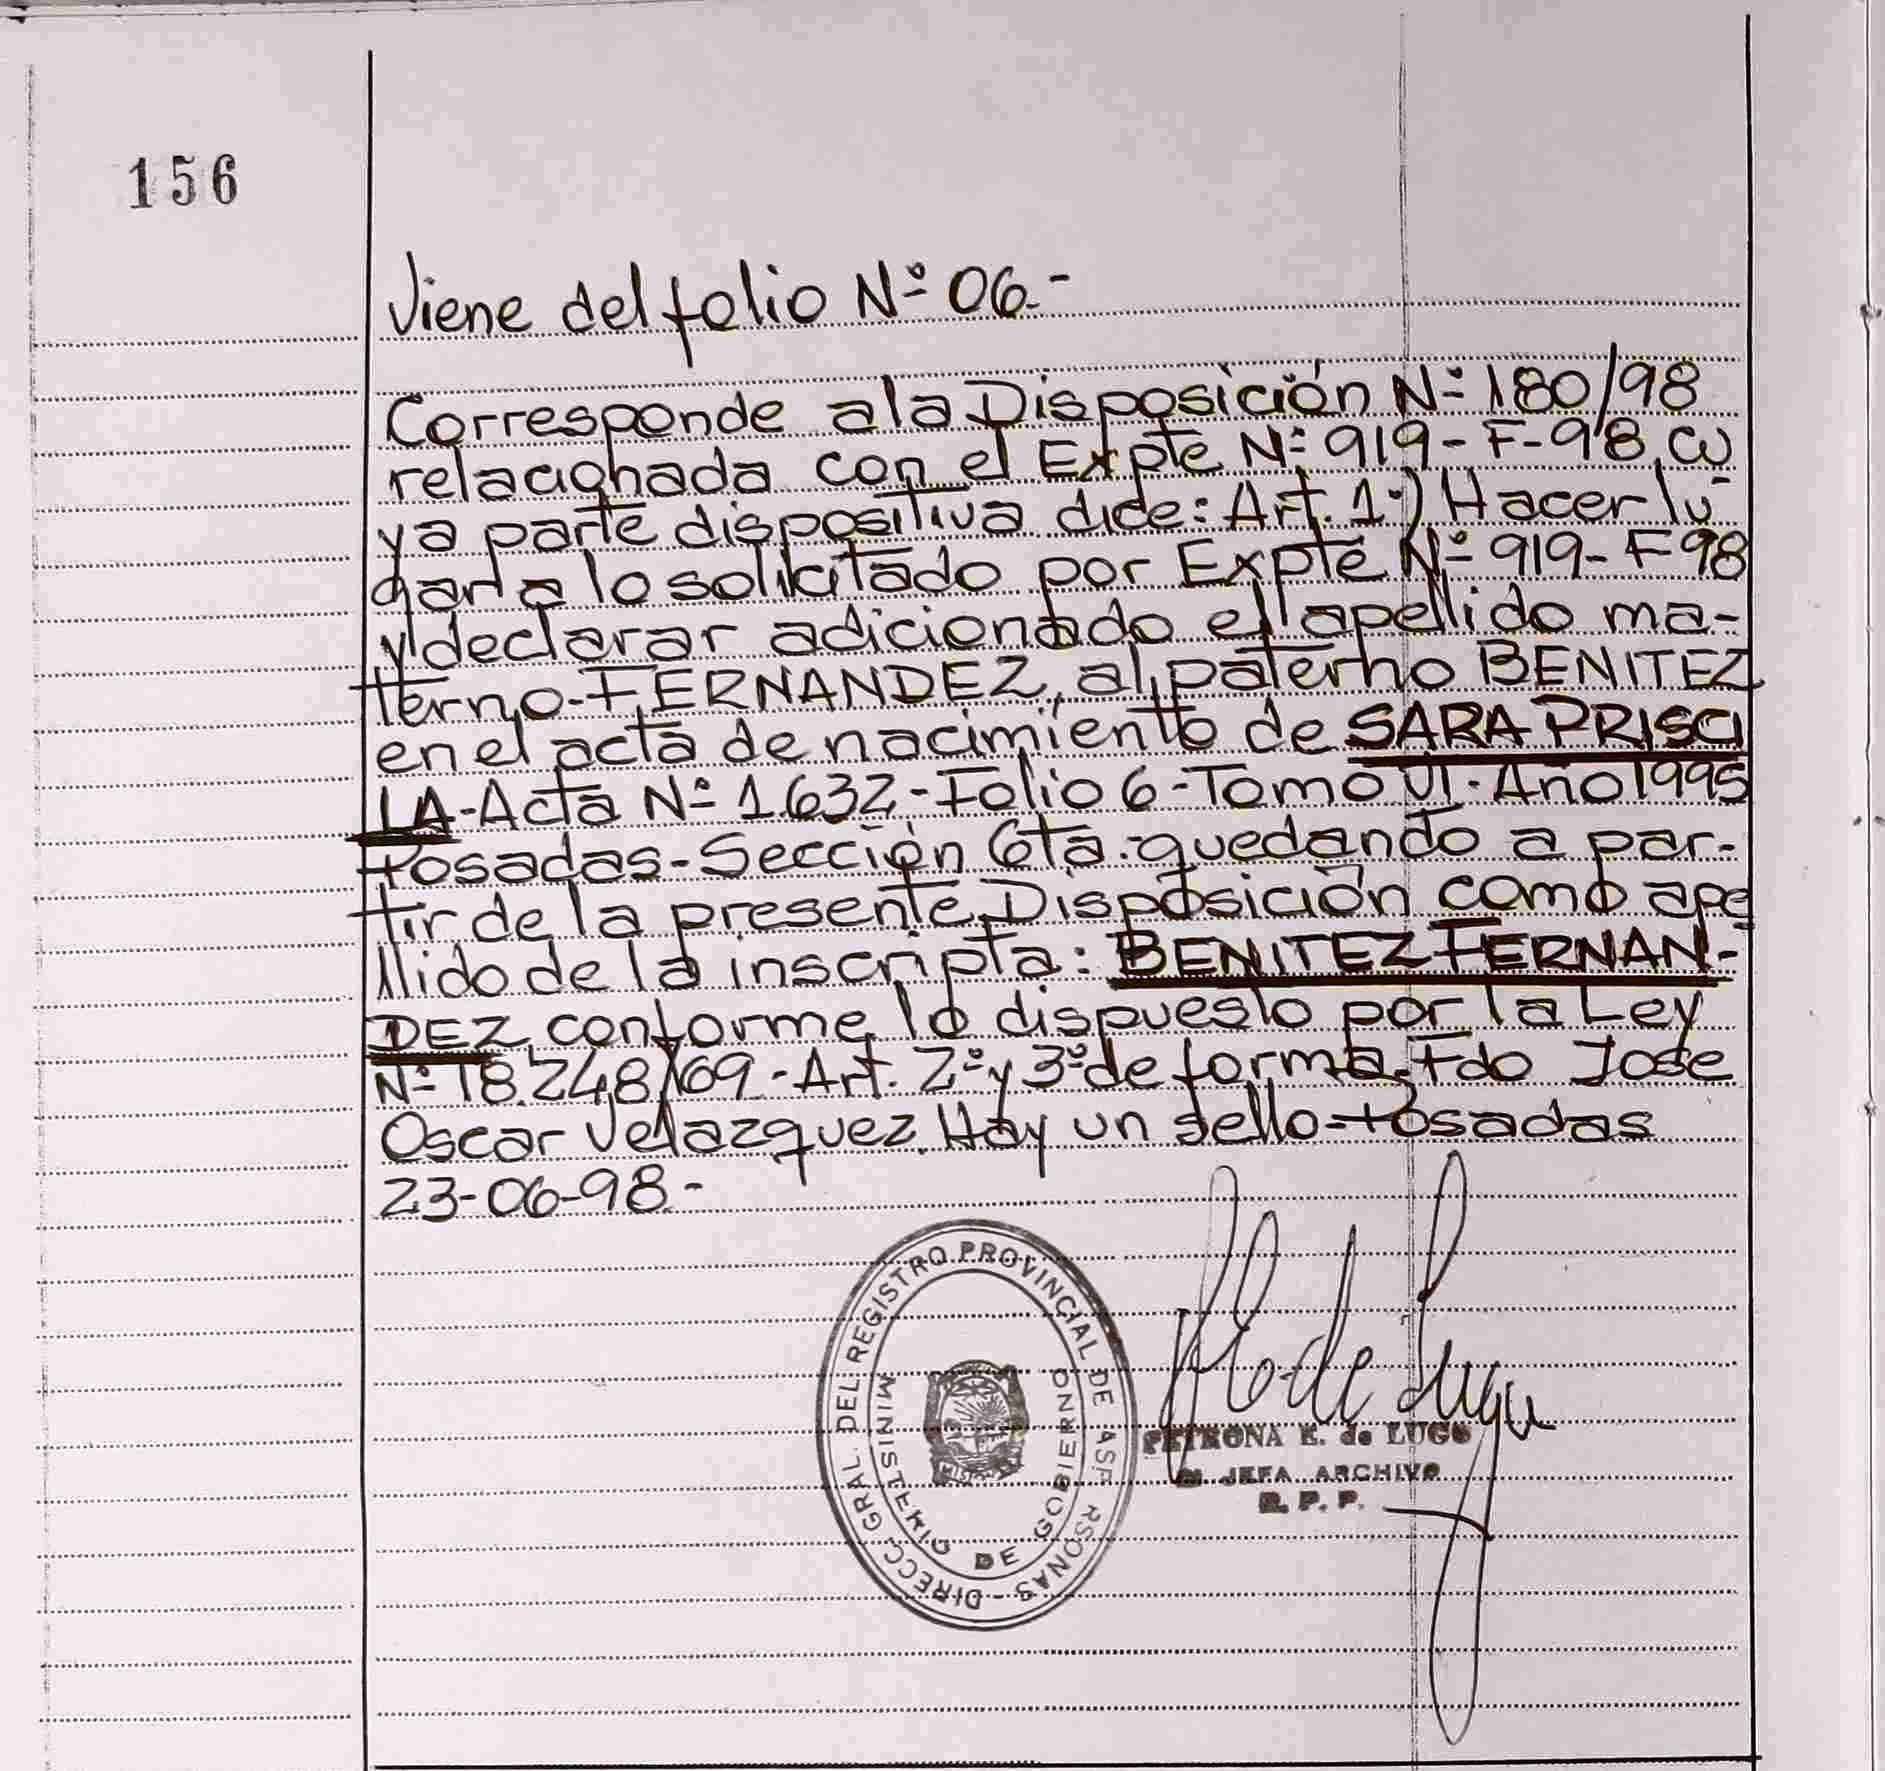 156
Viene del folio Nº 06.-
Corresponde a la Disposición Nº 180/98
relacionada con el Expte Nº 919-F-98 cu
ya parte dispositiva dice: Art. 1º) Hacer lu
gar a lo solicitado por Expte Nº 919-F98
y declarar adicionado el apellido ma-
terno FERNANDEZ, al paterno BENITEZ
en el acta de nacimiento de SARA PRISCI
LA-Acta Nº 1.632-Folio 6-Tomo VI-Año 1995
Posadas-Sección 6ta. quedando a par-
tir de la presente Disposición como ape
llido de la inscripta: BENITEZ FERNAN-
DEZ conforme lo dispuesto por la Ley
Nº 18.248/69-Art. 2º y 3º de forma. Fdo Jose
Oscar Velazquez. Hay un sello-Posadas
23-06-98.-
DIRECC. GRAL. DEL REGISTRO PROVINCIAL DE
MINISTERIO DE GOBIERNO
PETRONA E. de LUGO
JEFA ARCHIVO
R. P. P.